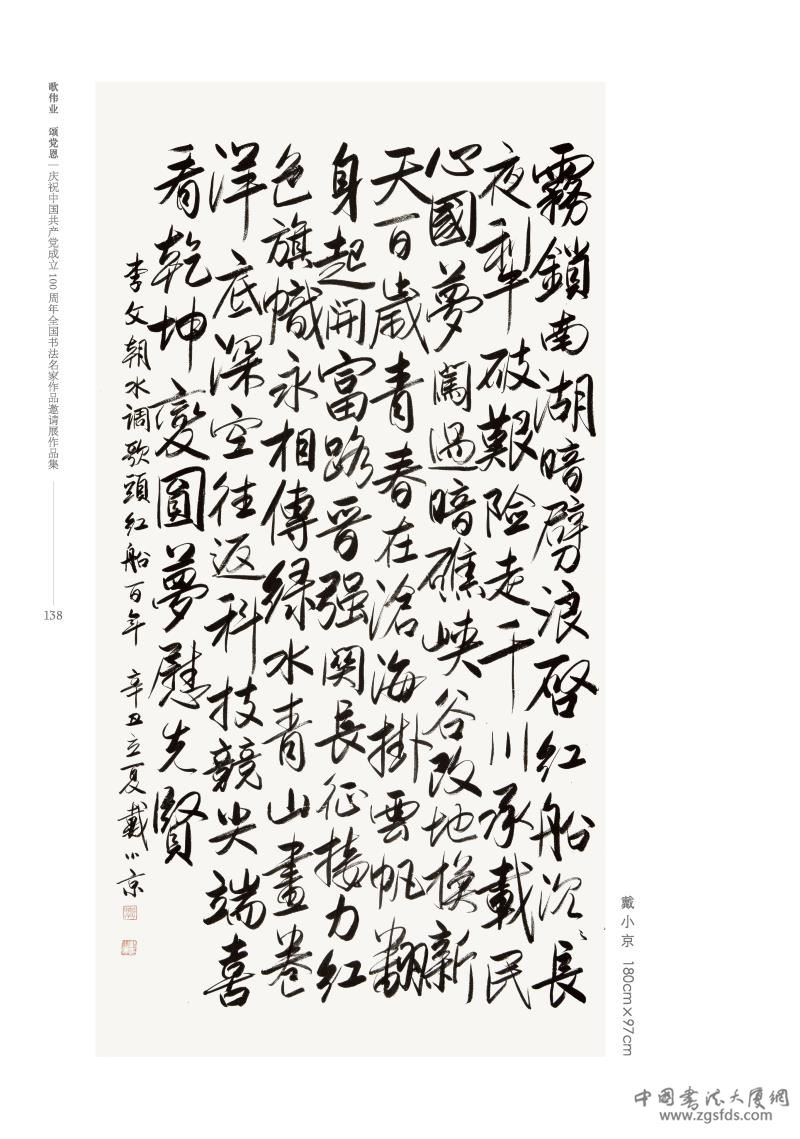 霧鎖南湖暗劈浪啓红船沉々長
夜犁破艱险走千川承載民
心國夢闖過暗礁峡谷改地换新
天百歲青春在滄海掛雲帆翻
身起開富路晋强関長征接力红
色旗幟永相傳绿水青山畫卷
洋底深空往返科技競尖端喜
看乾坤变圓夢慰先賢
李文朝水调歌頭红船百年 辛丑立夏戴小京
歌伟业 颂党恩 | 庆祝中国共产党成立100周年全国书法名家作品邀请展作品集
138
戴小京 180cm×97cm
中国书法大厦網
www.zgsfds.com